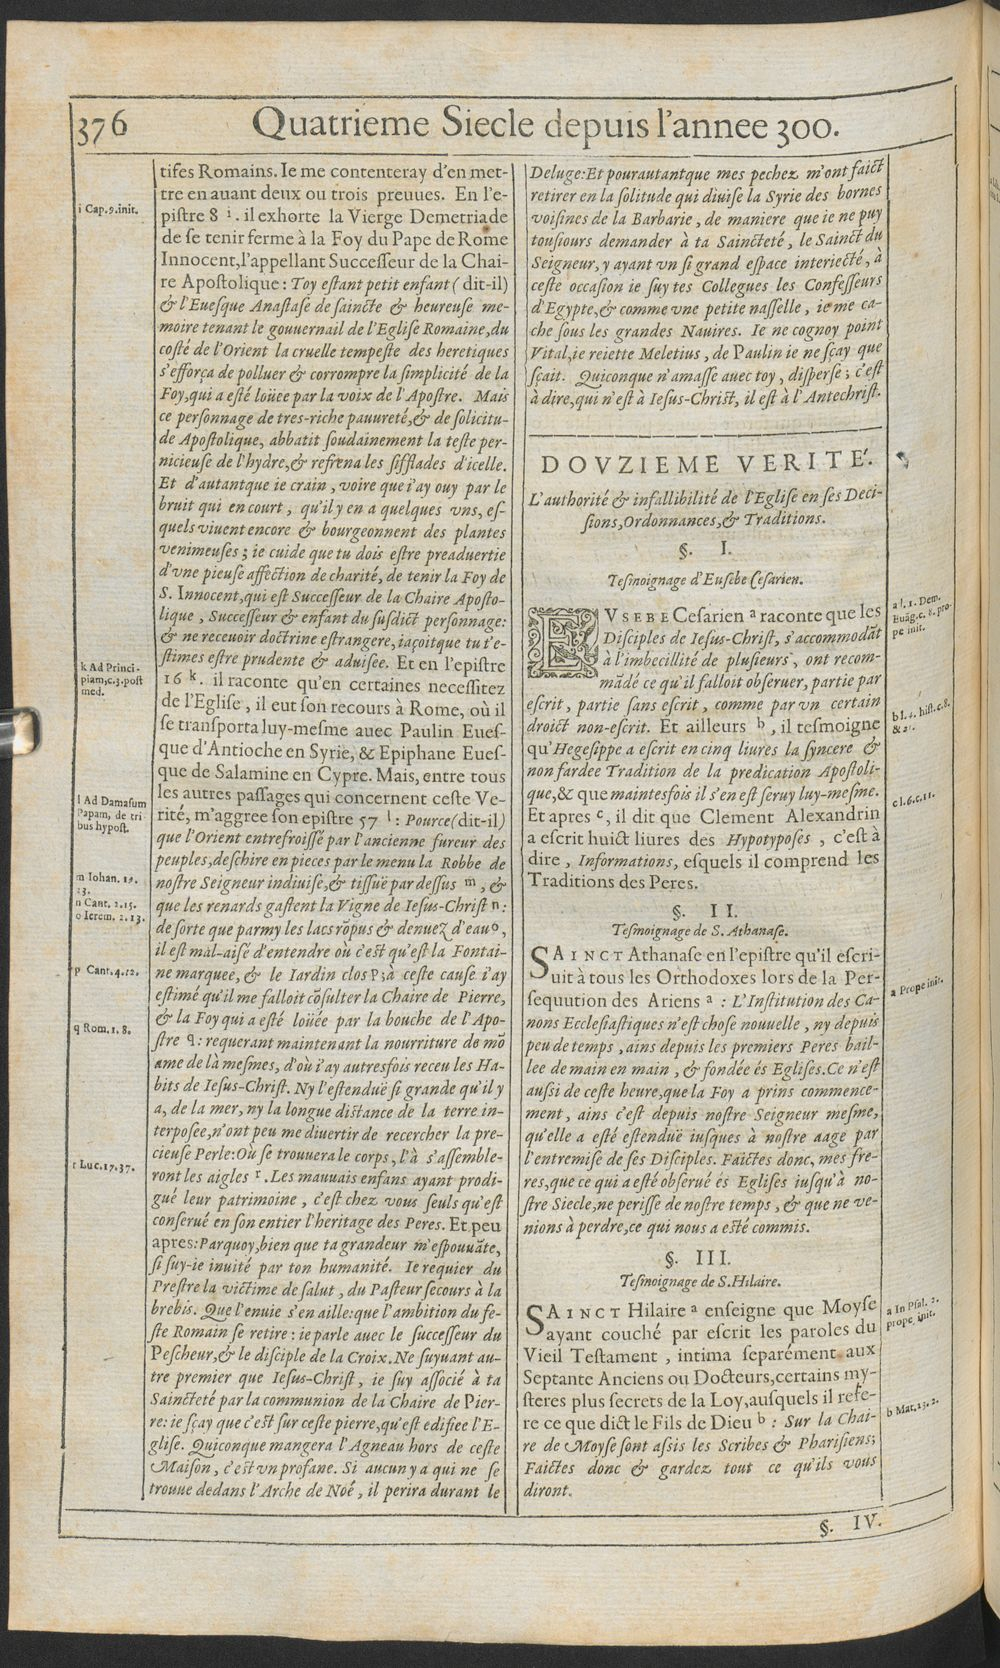 376
Quatrieme Siecle depuis l'annee 300.
tifes Romains. Ie me contenteray d'en met-
tre en auant deux ou trois preuues. En l'e-
pistre 8 i. il exhorte la Vierge Demetriade
de se tenir ferme à la Foy du Pape de Rome
Innocent, l'appellant Successeur de la Chai-
re Apostolique: Toy estant petit enfant (dit-il)
& l'Euesque Anastase de saincte & heureuse me-
moire tenant le gouuernail de l'Eglise Romaine, du
costé de l'Orient la cruelle tempeste des heretiques
s'efforça de polluer & corrompre la simplicité de la
Foy, qui a esté loüee par la voix de l'Apostre. Mais
ce personnage de tres-riche pauureté, & de solicitu-
de Apostolique, abbatit soudainement la teste per-
nicieuse de l'hydre, & refrena les sifflades d'icelle.
Et d'autantque ie crain, voire que i'ay ouy par le
bruit qui en court, qu'il y en a quelques vns, es-
quels viuent encore & bourgeonnent des plantes
venimeuses; ie cuide que tu dois estre preaduertie
d'vne pieuse affection de charité, de tenir la Foy de
S. Innocent, qui est Successeur de la Chaire Aposto-
lique, Successeur & enfant du susdict personnage:
& ne receuoir doctrine estrangere, iaçoitque tu t'e-
stimes estre prudente & aduisee. Et en l'epistre
16 k. il raconte qu'en certaines necessitez
de l'Eglise, il eut son recours à Rome, où il
se transporta luy-mesme auec Paulin Eues-
que d'Antioche en Syrie, & Epiphane Eues-
que de Salamine en Cypre. Mais, entre tous
les autres passages qui concernent ceste Ve-
rité, m'aggree son epistre 57 l: Pource (dit-il)
que l'Orient entrefroissé par l'ancienne fureur des
peuples, deschire en pieces par le menu la Robbe de
nostre Seigneur indiuise, & tissuë par dessus m, &
que les renards gastent la Vigne de Iesus-Christ n:
de sorte que parmy les lacs rõpus & denuez d'eau o,
il est mal-aisé d'entendre où c'est qu'est la Fontai-
ne marquee, & le Iardin clos p; à ceste cause i'ay
estimé qu'il me falloit cõsulter la Chaire de Pierre,
& la Foy qui a esté loüée par la bouche de l'Apo-
stre q: requerant maintenant la nourriture de mõ
ame de là mesmes, d'où i'ay autresfois receu les Ha-
bits de Iesus-Christ. Ny l'estenduë si grande qu'il y
a, de la mer, ny la longue distance de la terre in-
terposee, n'ont peu me diuertir de recercher la pre-
cieuse Perle: Où se trouuera le corps, l'à s'assemble-
ront les aigles r. Les mauuais enfans ayant prodi-
gué leur patrimoine, c'est chez vous seuls qu'est
conserué en son entier l'heritage des Peres. Et peu
apres: Parquoy, bien que ta grandeur m'espouuãte,
si suy-ie inuité par ton humanité. Ie requier du
Prestre la victime de salut, du Pasteur secours à la
brebis. Que l'enuie s'en aille: que l'ambition du fe-
ste Romain se retire: ie parle auec le successeur du
Pescheur, & le disciple de la Croix. Ne suyuant au-
tre premier que Iesus-Christ, ie suy associé à ta
Saincteté par la communion de la Chaire de Pier-
re: ie sçay que c'est sur ceste pierre, qu'est edifiee l'E-
glise. Quiconque mangera l'Agneau hors de ceste
Maison, c'est vn profane. Si aucun y a qui ne se
trouue dedans l'Arche de Noé, il perira durant le
i Cap. 9. init.
k Ad Princi-
piam, c. 3. post
med.
l Ad Damasum
Papam, de tri
bus hypost.
m Iohan. 19.
23.
n Cant. 2. 15.
o Ierem. 2. 13.
p Cant. 4. 12.
q Rom. 1. 8.
r Luc. 17. 37.
Deluge: Et pourautantque mes pechez m'ont faict
retirer en la solitude qui diuise la Syrie des bornes
voisines de la Barbarie, de maniere que ie ne puy
tousiours demander à ta Saincteté, le Sainct du
Seigneur, y ayant vn si grand espace interiecté, à
ceste occasion ie suy tes Collegues les Confesseurs
d'Egypte, & comme vne petite nasselle, ie me ca-
che sous les grandes Nauires. Ie ne cognoy point
Vital, ie reiette Meletius, de Paulin ie ne sçay que
sçait. Quiconque n'amasse auec toy, disperse; c'est
à dire, qui n'est à Iesus-Christ, il est à l'Antechrist.
DOVZIEME VERITÉ.
L'authorité & infallibilité de l'Eglise en ses Deci-
sions, Ordonnances, & Traditions.
§. I.
Tesmoignage d'Eusebe Cesarien.
EVSEBE Cesarien a raconte que les
Disciples de Iesus-Christ, s'accommodãt
à l'imbecillité de plusieurs, ont recom-
mãdé ce qu'il falloit obseruer, partie par
escrit, partie sans escrit, comme par vn certain
droict non-escrit. Et ailleurs b, il tesmoigne
qu'Hegesippe a escrit en cinq liures la syncere &
non fardee Tradition de la predication Apostoli-
que, & que maintesfois il s'en est seruy luy-mesme.
Et apres c, il dit que Clement Alexandrin
a escrit huict liures des Hypotyposes, c'est à
dire, Informations, esquels il comprend les
Traditions des Peres.
§. II.
Tesmoignage de S. Athanase.
SAINCT Athanase en l'epistre qu'il escri-
uit à tous les Orthodoxes lors de la Per-
sequution des Ariens a: L'Institution des Ca-
nons Ecclesiastiques n'est chose nouuelle, ny depuis
peu de temps, ains depuis les premiers Peres bail-
lee de main en main, & fondée és Eglises. Ce n'est
aussi de ceste heure, que la Foy a prins commence-
ment, ains c'est depuis nostre Seigneur mesme,
qu'elle a esté estenduë iusques à nostre aage par
l'entremise de ses Disciples. Faictes donc, mes fre-
res, que ce qui a esté obserué és Eglises iusqu'à no-
stre Siecle, ne perisse de nostre temps, & que ne ve-
nions à perdre, ce qui nous a esté commis.
§. III.
Tesmoignage de S. Hilaire.
SAINCT Hilaire a enseigne que Moyse
ayant couché par escrit les paroles du
Vieil Testament, intima separément aux
Septante Anciens ou Docteurs, certains my-
steres plus secrets de la Loy, ausquels il refe-
re ce que dict le Fils de Dieu b: Sur la Chai-
re de Moyse sont assis les Scribes & Pharisiens;
Faictes donc & gardez tout ce qu'ils vous
diront.
a l. 1. Dem.
Euãg. c. 8. pro-
pe init.
b l. 4. hist. c. 8.
c l. 6. c. 11.
a Prope init.
a In Psal. 2.
prope init.
b Mat. 23. 2.
§. IV.